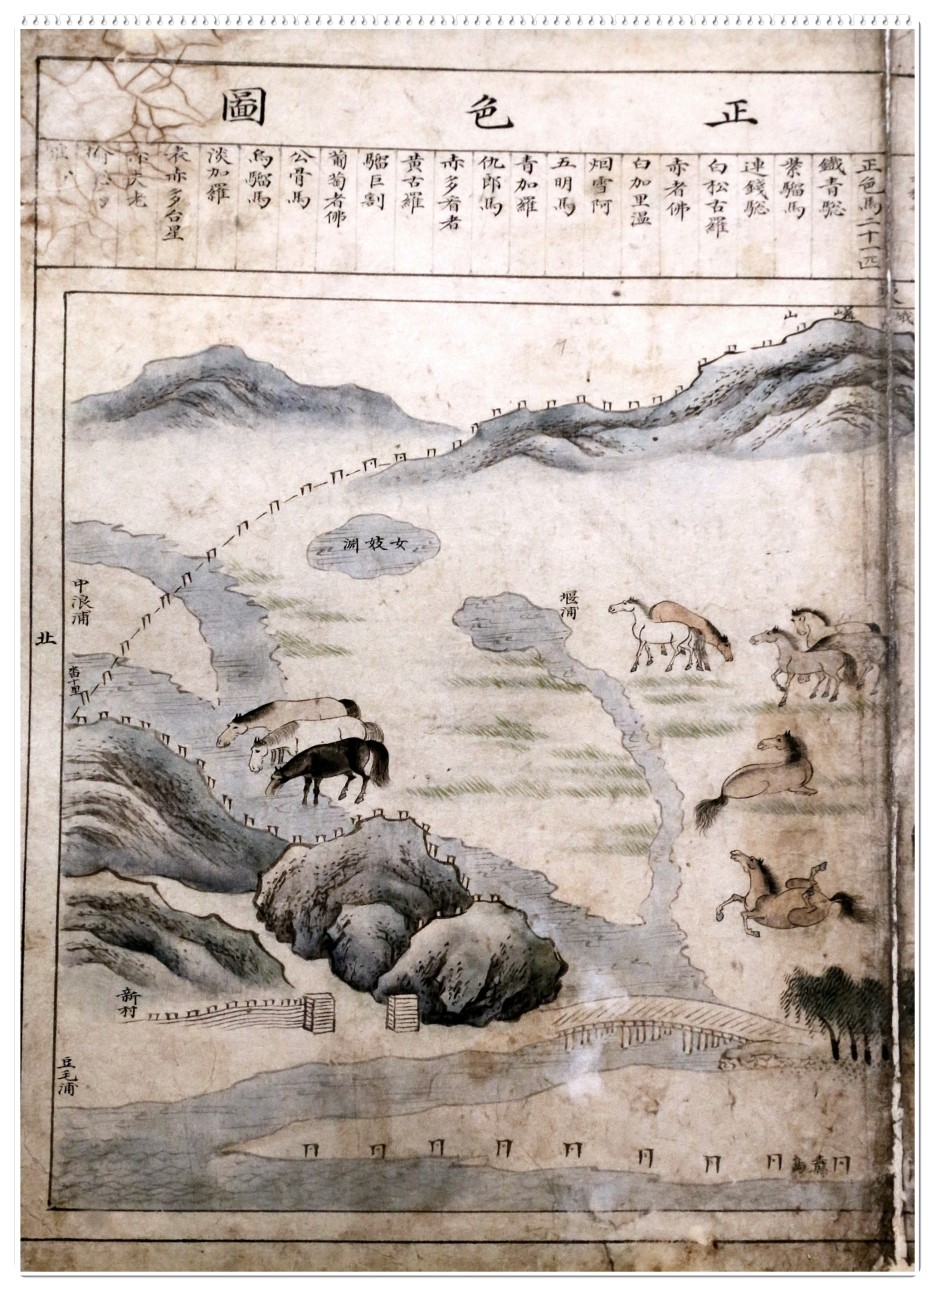 正色圖
正色馬二十一匹
鐵青驄
紫騮馬
連錢驄
白松古羅
赤者佛
白加里溫
烟雪阿
五明馬
青加羅
仇郎馬
赤多看者
黃古羅
騮巨割
葡萄者佛
公骨馬
烏騮馬
淡加羅
表赤多台星
峨嵯山
女妓淵
堰浦
中浪浦
北
十里
新村
豆毛浦
纛島